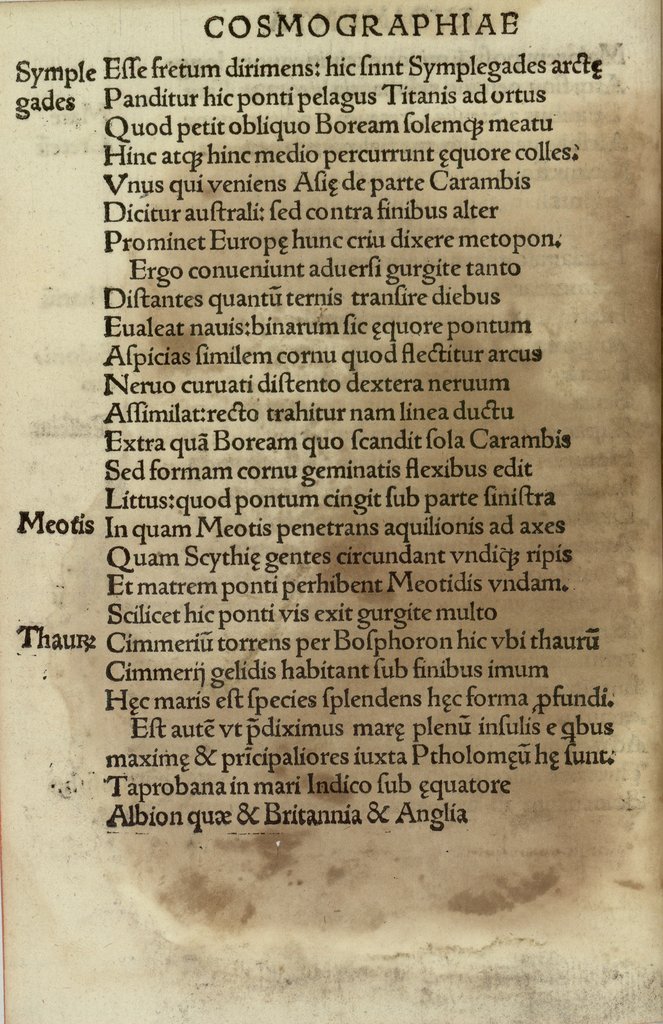 COSMOGRAPHIAE
Symple
gades
Eſſe fretum dirimens: hic ſnnt Symplegades arctę
Panditur hic ponti pelagus Titanis ad ortus
Quod petit obliquo Boream ſolemq̃ meatu
Hinc atq̃ hinc medio percurrunt ęquore colles:
Vnus qui veniens Aſię de parte Carambis
Dicitur auſtrali: ſed contra finibus alter
Prominet Europę hunc criu dixere metopon.
Ergo conueniunt aduerſi gurgite tanto
Diſtantes quantū ternis tranſire diebus
Eualeat nauis:binarum ſic ęquore pontum
Aſpicias ſimilem cornu quod flectitur arcus
Neruo curuati diſtento dextera neruum
Aſſimilat:recto trahitur nam linea ductu
Extra quā Boream quo ſcandit ſola Carambis
Sed formam cornu geminatis flexibus edit
Littus:quod pontum cingit ſub parte ſiniſtra
Meotis
In quam Meotis penetrans aquilionis ad axes
Quam Scythię gentes circundant vndiq̃ ripis
Et matrem ponti perhibent Meotidis vndam.
Scilicet hic ponti vis exit gurgite multo
Thauꝝ
Cimmeriū torrens per Boſphoron hic vbi thaurū
Cimmerij gelidis habitant ſub finibus imum
Hęc maris eſt ſpecies ſplendens hęc forma ꝓfundi.
Eſt autē vt p̄diximus marę plenū inſulis e qͥbus
maximę & prīcipaliores iuxta Ptholomęū hę ſunt.
Taprobana in mari Indico ſub ęquatore
Albion quæ & Britannia & Anglia